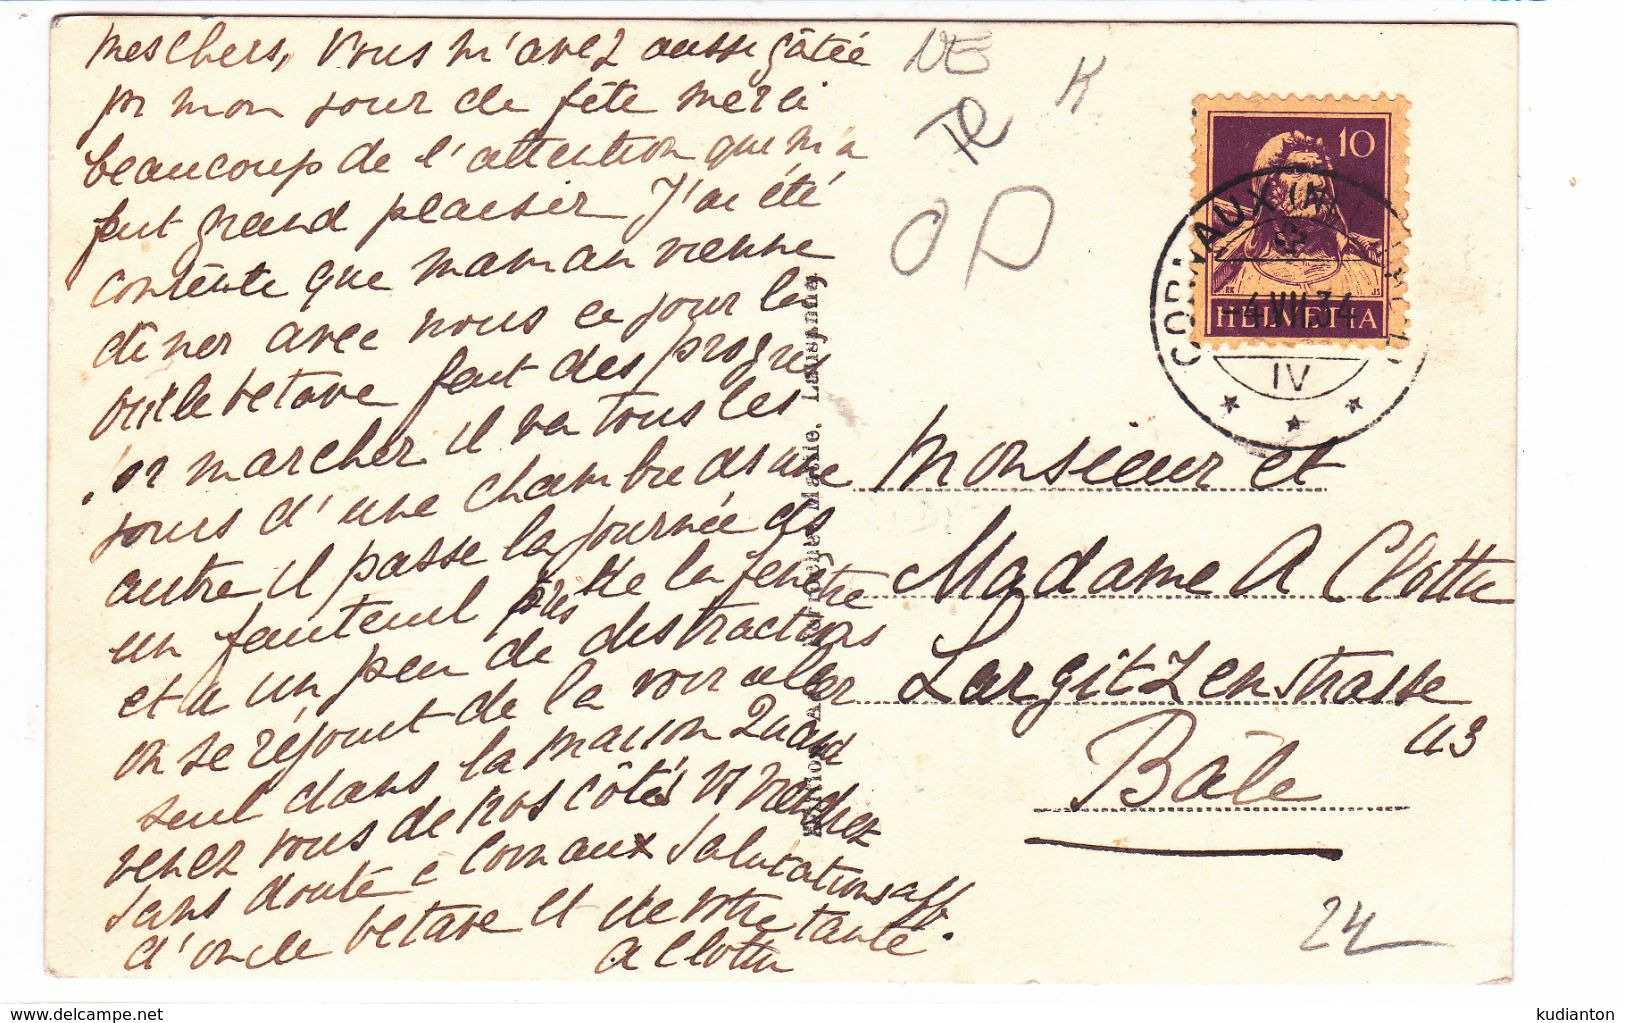 mes chers, vous m'avez aussi gâtée
pr mon jour de fête merci
beaucoup de l'attention qui m'a
fait grand plaisir J'ai été
contente que maman vienne
dîner avec nous ce jour la
oncle betave fait des progres
pr marcher il va tous les
jours d'une chambre ds une
autre il passe la journée ds
un fauteuil près de la fenêtre
et a un peu de distractions
on se réjouit de la voir aller
seul dans la maison Quand
venez vous de nos côtés vs viendrez
sans doute à Cornaux Salutations aff
d'oncle betave et de votre tante.
A Clottu
NE
TR
K
OD
10
HELVETIA
CORNAUX
-4.VII.34
IV
Lausanne
Monsieur et
Madame A Clottu
Largitzenstrasse
43
Bâle
24
www.delcampe.net
kudianton